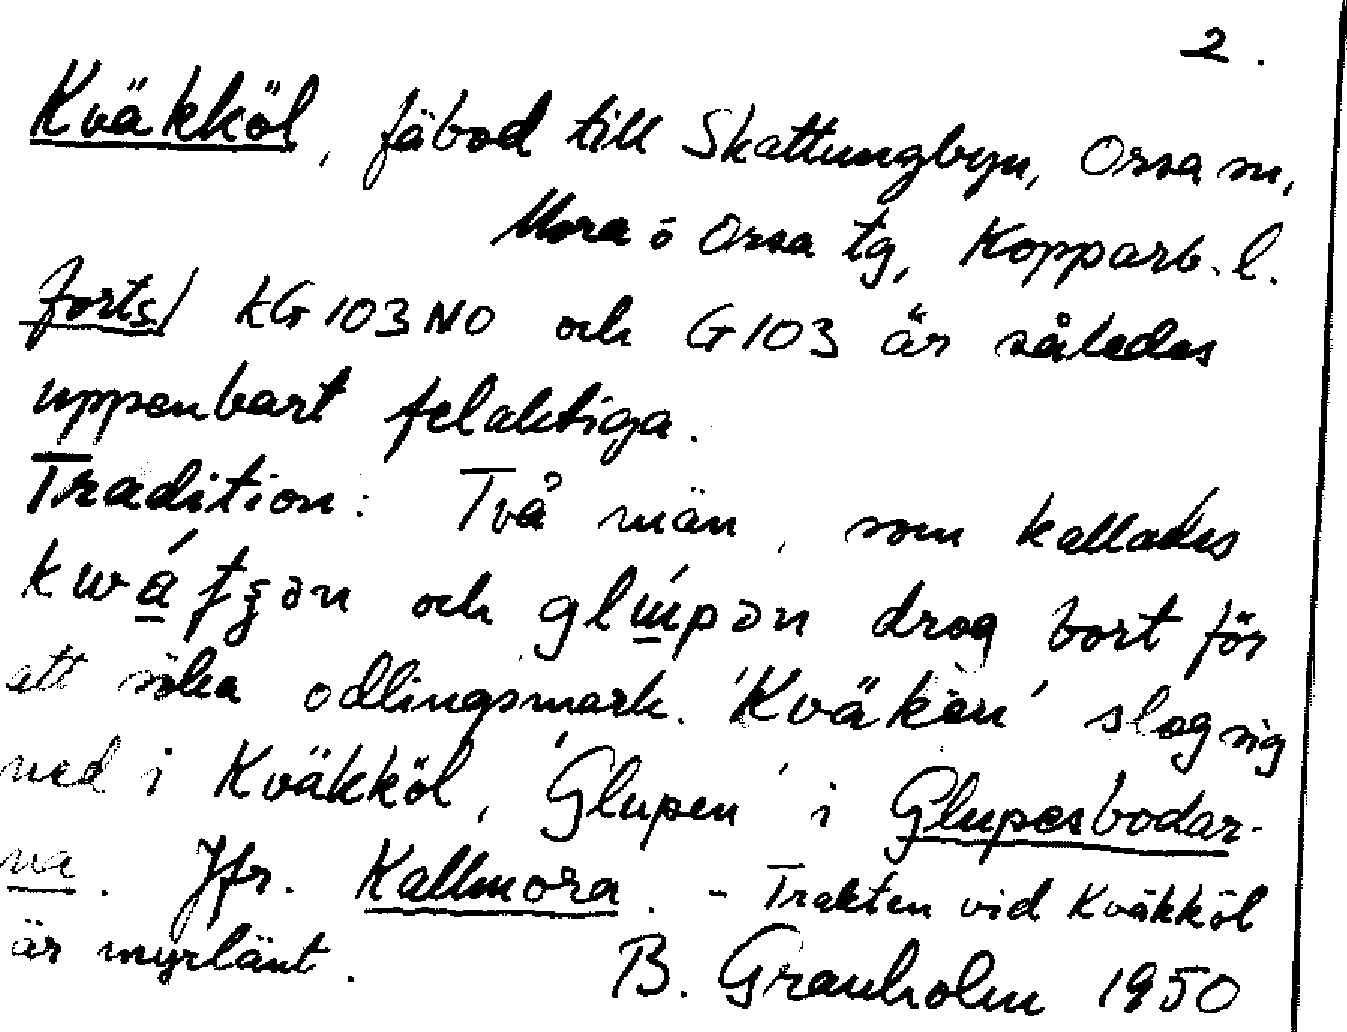 2.
Kväkköl, fäbod till Skattungbyn, Orsa sn,
Mora o Orsa tg, Kopparb. l.
forts/ KG 103 NO och G 103 är således
uppenbart felaktiga.
Tradition: Två män, som kallades
och drog bort för
att söka odlingsmark. 'Kväken' slog sig
ned i Kväkköl, 'Glupen' i Glupesbodar-
na. Jfr. Kallmora. - Trakten vid Kväkköl
är myrlänt. B. Granholm 1950